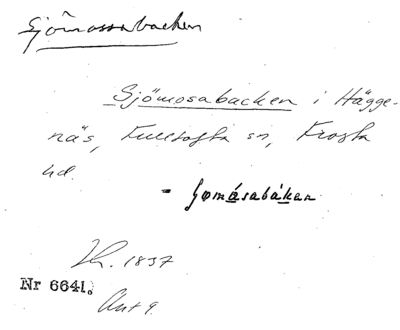 Sjömossabacken
Sjömosabacken i Hägge-
näs, Fulltofta sn, Frosta
hd.
- ʃømása̱báken
Lh. 1837
Nr 6641.
Ant 9.